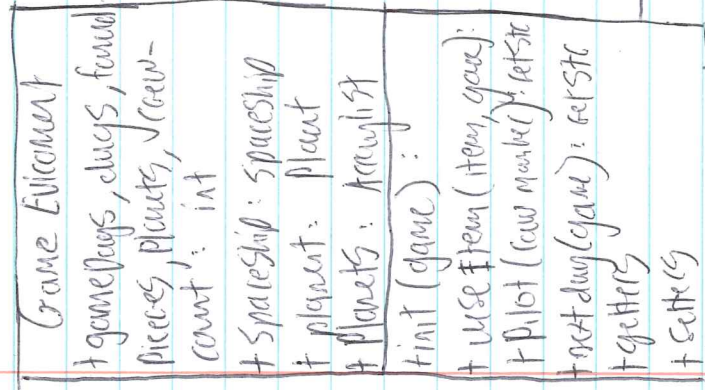 Game Eviroment
+ gameDays, days, found
Pieces, Planets, crew-
count : int
+ Spaceship : Spaceship
+ planet : Planet
+ Planets : Arraylist
+ init (game) :
+ use Item (item, game) :
+ Pilot (crew member) : retStr
+ next day (game) : retStr
+ getters
+ setters